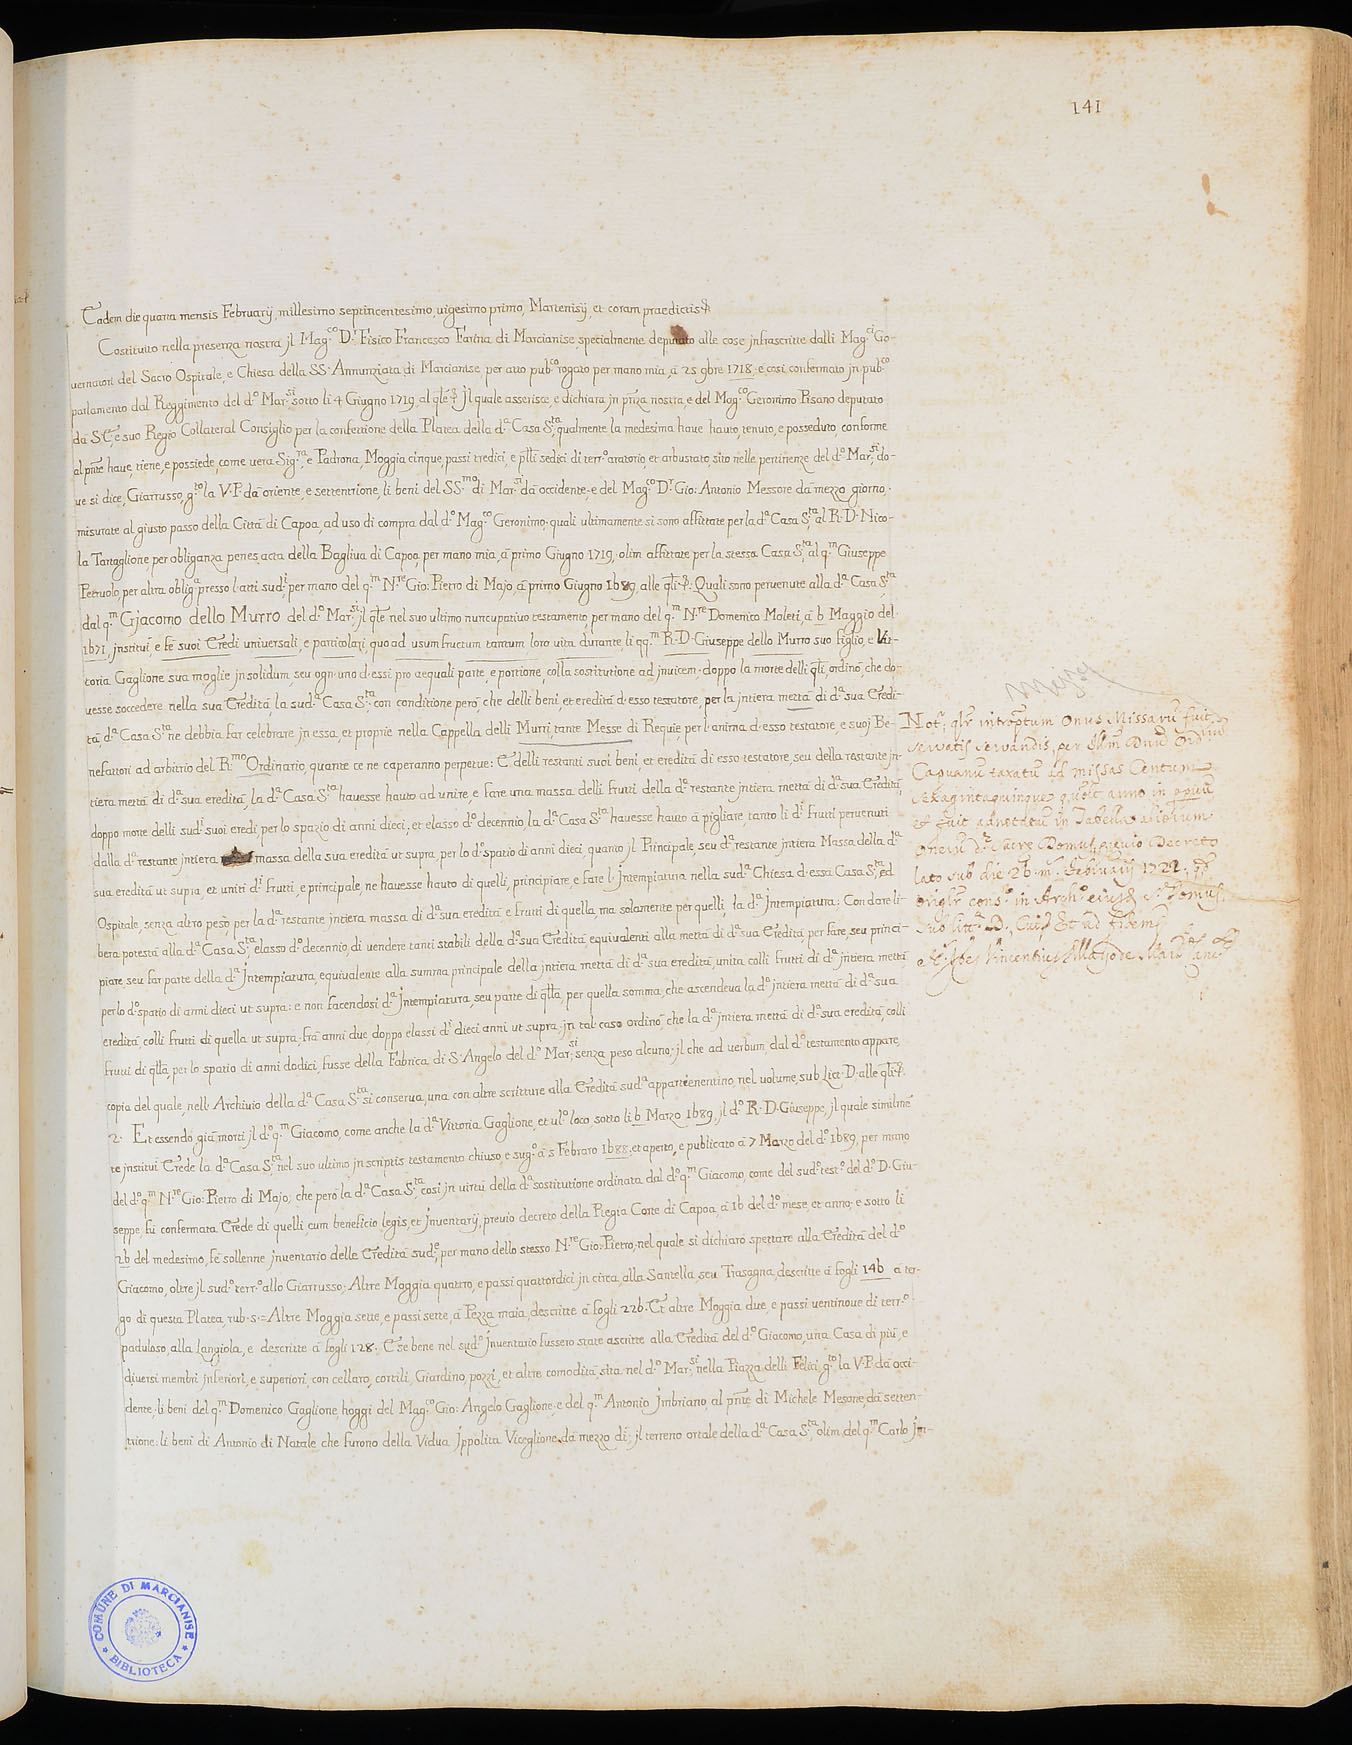 141
Eadem die quarta mensis Februarij, millesimo septincentesimo, uigesimo primo, Martenisij, et coram praedictis
Costituito nella presenza nostra jl Mag.co D.r Fisico Francesco Farina di Marcianise specialmente deputato alle cose jnfrascritte dalli Mag.ci Go-
uernatori del Sacro Ospitale, e Chiesa della SS. Annunziata di Marcianise, per atto pub.co rogato per mano mia, à 25 9bre 1718. e così confermato jn pub.co
parlamento dal Reggimento del d.o Mar.si sotto li 4 Giugno 1719, al qle Jl quale asserisce, e dichiara jn pnza nostra, e del Mag.co Geronimo Pisano deputato
da S.E, e suo Regio Collateral Consiglio per la confettione della Platea della d.a Casa S.ta, qualmente la medesima haue hauto, tenuto, e posseduto, conforme
al pnte haue, tiene, e possiede, come uera Sig.ra, e Padrona, Moggia cinque, passi tredici, e plti sedici di terr.o aratorio, et arbustato, sito nelle pertinenze del d.o Mar.si, do-
ue si dice, Giarrusso, g.to la V.P. dà oriente, e settentrione, li beni del SS.mo di Mar.si dà occidente, e del Mag.co D.r Gio: Antonio Messore dà mezzo giorno.
misurate al giusto passo della Città di Capoa, ad uso di compra dal d.o Mag.co Geronimo. quali ultimamente si sono affittate per la d.a Casa S.ta al R.D. Nico-
la Tartaglione, per obliganza penes acta della Bagliua di Capoa, per mano mia, à primo Giugno 1719, olim affittate per la stessa Casa S.ta al q.m Giuseppe
Petruolo, per altra oblig.a presso l'atti sud.i, per mano del q.m N.re Gio: Pietro di Majo, à primo Giugno 1689, alle qli. Quali sono peruenute alla d.a Casa S.ta
dal q.m Gjacomo dello Murro del d.o Mar.si, jl qle nel suo ultimo nuncupatiuo testamento, per mano del q.m N.re Domenico Moleti, à 6 Maggio del
1671, jnstituì, e fè suoi Eredi uniuersali, e particolari, quo ad usumfructum tantum loro uita durante, li qq.m R.D. Giuseppe dello Murro suo figlio, e Vit-
toria Gaglione sua moglie jnsolidum, seu ogn'uno d'essi pro aequali parte, e portione, colla sostitutione ad jnuicem. doppo la morte delli qli, ordinò, che do-
uesse soccedere nella sua Eredità, la sud.a Casa S.ta, con conditione però, che delli beni, et eredità d'esso testatore, per la jntiera mettà di d.a sua Eredi-
tà, d.a Casa S.ta ne debbia far celebrare jn essa, et proprie nella Cappella delli Murri, tante Messe di Requie per l'anima d'esso testatore, e suoj Be-
nefattori ad arbitrio del R.mo Ordinario, quante ce ne caperanno perpetue: E delli restanti suoi beni, et eredità di esso testatore, seu della restante jn-
tiera mettà di d.a sua eredità, la d.a Casa S.ta hauesse hauto ad unire, e fare una massa delli frutti della d.a restante jntiera mettà di d.a sua Eredità,
doppo morte delli sud.i suoi eredi, per lo spazio di anni dieci, et elasso d.o decennio, la d.a Casa S.ta hauesse hauto à pigliare, tanto li d.i frutti peruenuti
dalla d.a restante jntiera massa della sua eredità ut supra, per lo d.o spatio di anni dieci, quanto jl Principale, seu d.a restante jntiera Massa della d.a
sua eredità ut supra, et uniti d.i frutti, e principale, ne hauesse hauto di quelli, principiare, e fare l'Jntempiatura nella sud.a Chiesa d'essa Casa S.ta, ed
Ospitale, senza altro peso, per la d.a restante jntiera massa di d.a sua eredità, e frutti di quella, ma solamente per quelli, la d.a Jntempiatura: Con dare li-
bera potestà alla d.a Casa S.ta, elasso d.o decennio, di uendere tanti stabili della d.a sua Eredità, equiualenti alla mettà di d.a sua Eredità, per fare, seu princi-
piare, seu far parte della d.a Jntempiatura, equiualente alla summa principale della jntiera mettà di d.a sua eredità, unita colli frutti di d.a jntiera mettà
per lo d.o spatio di anni dieci ut supra: e non facendosi d.a Jntempiatura, seu parte di qlla, per quella somma, che ascendeua la d.a jntiera mettà di d.a sua
eredità, colli frutti di quella ut supra, frà anni due, doppo elassi d.i dieci anni ut supra, jn tal caso ordinò, che la d.a jntiera mettà di d.a sua eredità, colli
frutti di qlla, per lo spatio di anni dodici, fusse della Fabrica di S. Angelo del d.o Mar.si, senza peso alcuno: jl che ad uerbum, dal d.o testamento appare,
copia del quale, nell'Archiuio della d.a Casa S.ta si conserua, una con altre scritture alla Eredità sud.a appartenentino, nel uolume, sub Litt. D. alle qli.
2. Et essendo già morti jl d.o q.m Giacomo, come anche la d.a Vittoria Gaglione, et ul.o loco, sotto li 6 Marzo 1689, jl d.o R.D. Giuseppe, jl quale similme
te jnstituì Erede la d.a Casa S.ta nel suo ultimo jn scriptis testamento chiuso, e sug.o à 5 Febraro 1688, et aperto, e publicato à 7 Marzo del d.o 1689, per mano
del d.o q.m N.re Gio: Pietro di Majo; che però la d.a Casa S.ta, così jn uirtù della d.a sostitutione ordinata dal d.o q.m Giacomo, come del sud.o test.o del d.o D. Giu-
seppe, fù confermata Erede di quelli, cum beneficio legis, et Jnuentarij, preuio decreto della Regia Corte di Capoa, à 16 del d.o mese, et anno: e sotto li
26 del medesimo, fè sollenne jnuentario delle Eredità sud.e, per mano dello stesso N.re Gio: Pietro, nel quale si dichiarò spettare alla Eredità del d.o
Giacomo, oltre jl sud.o terr.o allo Giarrusso; Altre Moggia quattro, e passi quattordici jn circa, alla Santella, seu Trasagna, descritte à fogli 146 a ter-
go di questa Platea, rub. s. = Altre Moggia sette, e passi sette, à Pezza maia, descritte à fogli 226. Et altre Moggia due, e passi uentinoue di terr.o
paduloso, alla Langiola, e descritte à fogli 128. E se bene nel sud.o Jnuentario fussero state ascritte alla Eredità del d.o Giacomo, una Casa di più, e
diuersi membri jnferiori, e superiori, con cellaro, cortili, Giardino, pozzi, et altre comodità, sita nel d.o Mar.si, nella Piazza delli Felici, g.to la V.P. dà occi-
dente. li beni del q.m Domenico Gaglione, hoggi del Mag.co Gio: Angelo Gaglione, e del q.m Antonio Jmbriano, al pnte di Michele Mesone, dà setten-
trione: li beni di Antonio di Natale che furono della Vidua Jppolita Viceglione, dà mezzo dì; jl terreno ortale della d.a Casa S.ta, olim del q.m Carlo Jm-
Not.r qlr introptum Onus Missarū fuit,
servatis servandis, per Illm Dnū Ordriū
Capuanū taxatū ad missas Centum
sexagintaquinque quolt anno in ppuū
et fuit adnotatū in Tabella aliorum
onerū d.e Sacre Domus, previo Decreto
lato sub die 26 m. Februarij 1722.
origlr cons.r in Arch.o eiusd S. Domus,
sub litt.a D.
Vincentius
COMUNE DI MARCIANISE
BIBLIOTECA